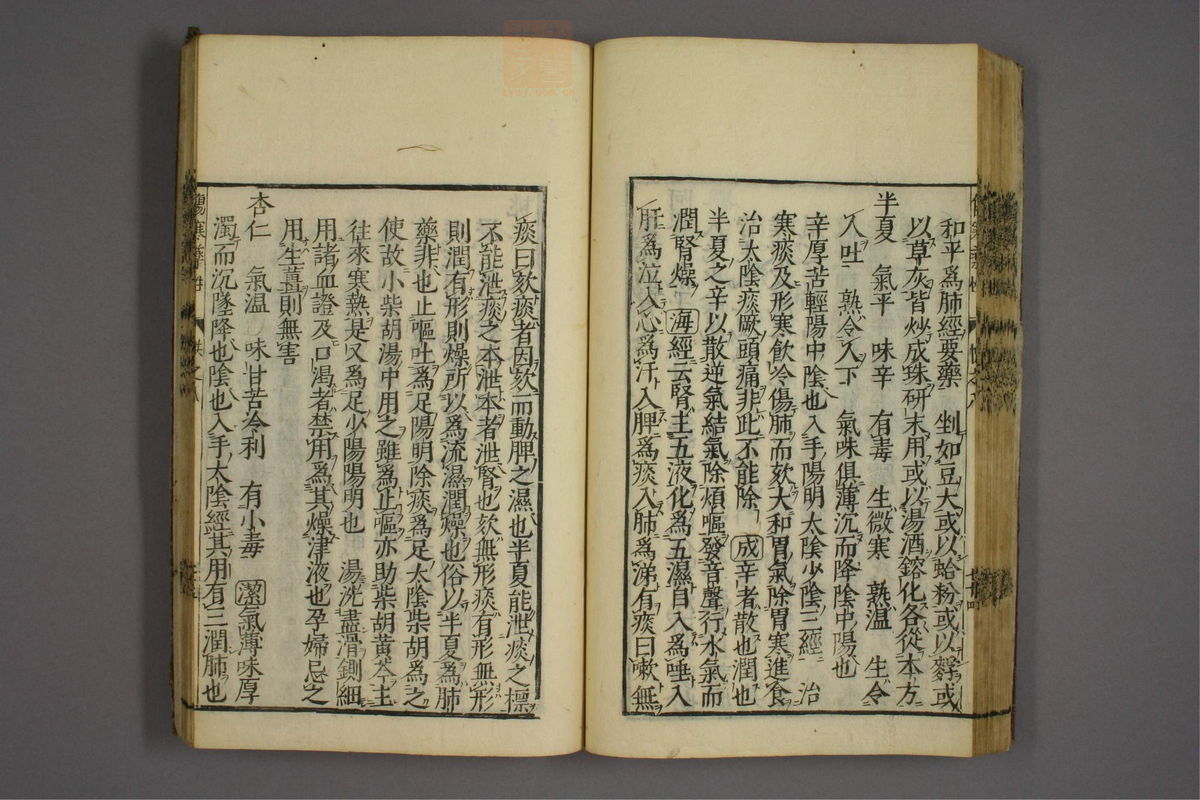 和平爲肺經要藥　剉如豆大或以蛤粉或以麪或
以草灰皆炒成珠研末用或以湯酒鎔化各從本方
半夏　氣平　味辛　有毒　生微寒　熟温　生令
入吐　熟令人下　氣味俱薄沉而降陰中陽也
辛厚苦輕陽中陰也入手陽明太陰少陰三經　治
寒痰及形寒飲冷傷肺而欬大和胃氣除胃寒進食
治太陰痰厥頭痛非此不能除　成辛者散也潤也
半夏之辛以散逆氣結氣除煩嘔發音聲行水氣而
潤腎燥　海經云腎主五液化爲五濕自入爲唾入
肝爲泣入心爲汗入脾爲痰入肺爲涕有痰曰嗽無
痰曰欬痰者因欬而動脾之濕也半夏能泄痰之標
不能泄痰之本泄本者泄腎也欬無形痰有形無形
則潤有形則燥所以爲流濕潤燥也俗以半夏爲肺
藥非也止嘔吐爲足陽明除痰爲足太陰柴胡爲之
使故小柴胡湯中用之雖爲止嘔亦助柴胡黄芩主
往來寒熱是又爲足少陽陽明也　湯洗盡滑剉細
用諸血證及口渇者禁用爲其燥津液也孕婦忌之
用生薑則無害
杏仁　氣温　味甘苦冷利　有小毒　潔氣薄味厚
濁而沉墜降也陰也入手太陰經其用有三潤肺也